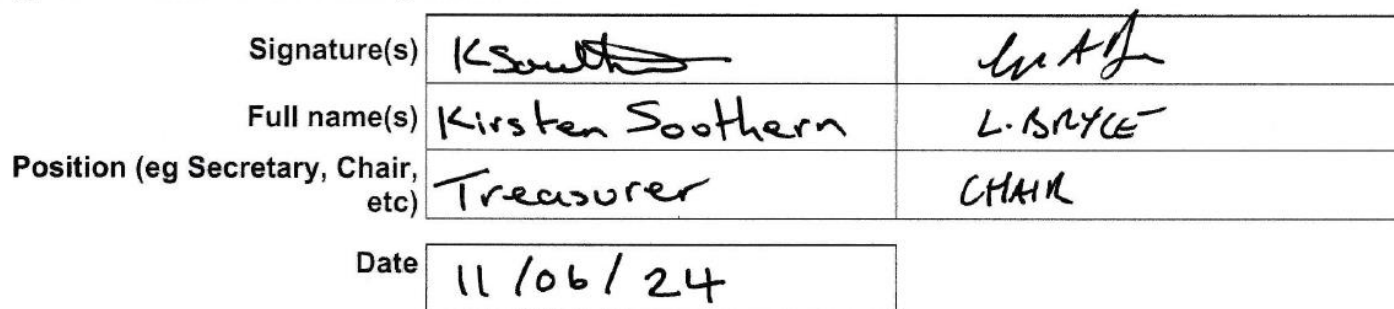 Signature(s)
Full name(s) Kirsten Soothern L. BRYCE
Position (eg Secretary, Chair,
etc) Treasurer CHAIR
Date 11/06/24